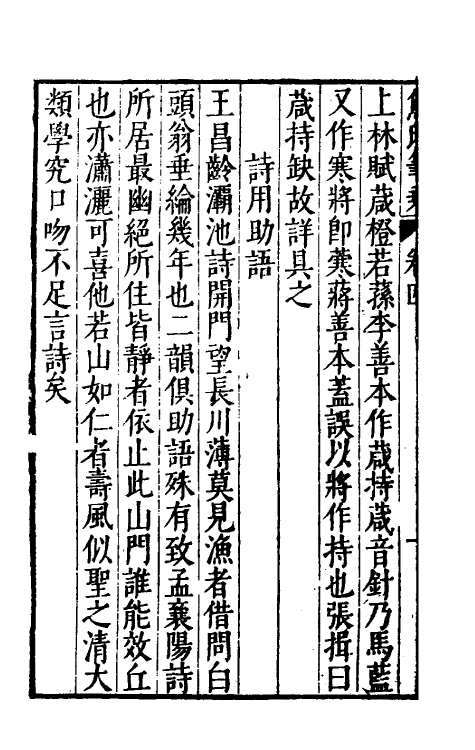 上林賦葴橙若蓀李善本作葴持葴音針乃馬藍
又作寒將卽薎蔣善本蓋誤以將作持也張揖曰
葴持缺故詳具之
詩用助語
王昌齡灞池詩開門望長川薄莫見漁者借問白
頭翁垂綸幾年也二韻俱助語殊有致孟襄陽詩
所居最幽絕所住皆靜者依止此山門誰能效丘
也亦瀟灑可喜他若山如仁者壽風似聖之清大
類學究口吻不足言詩矣